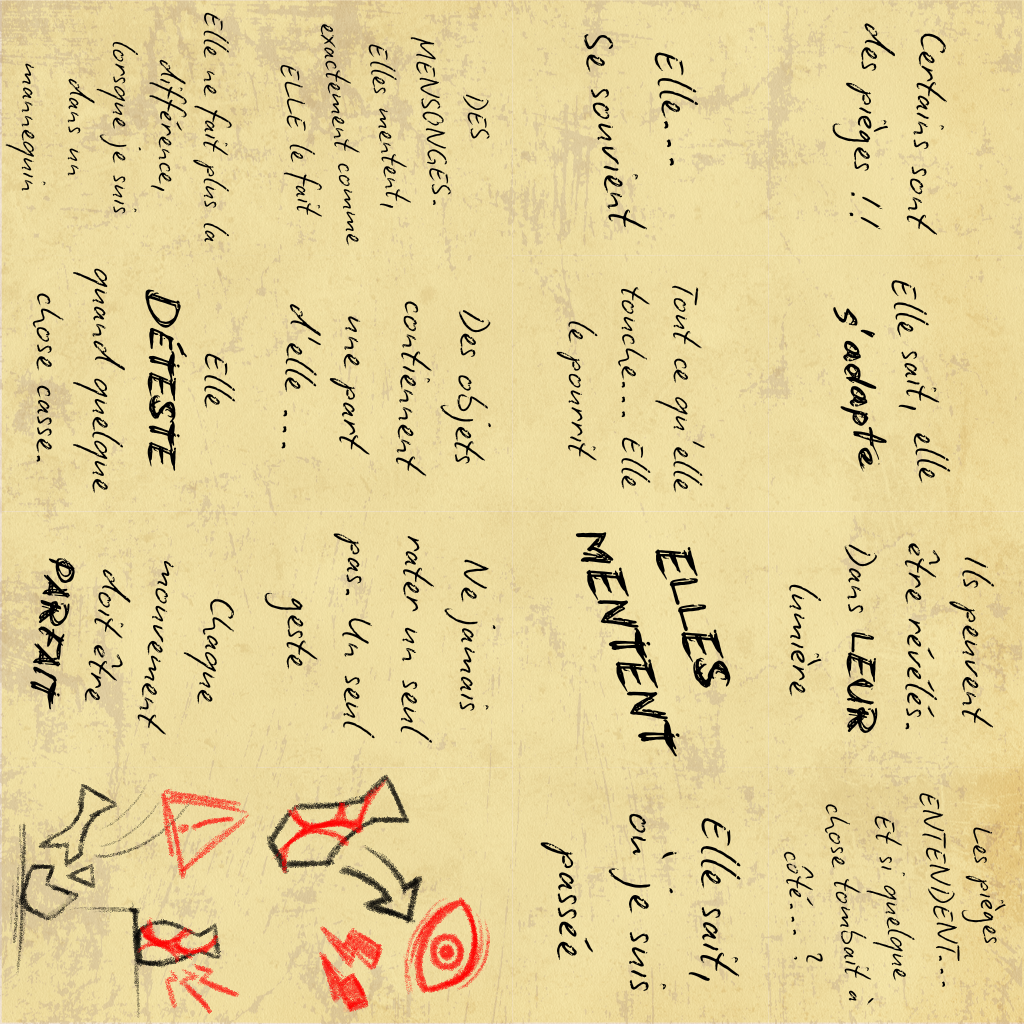 Certains sont
des pièges !!
Elle sait, elle
s'adapte
Ils peuvent
être révélés.
Dans LEUR
lumière
Les pièges
ENTENDENT...
Et si quelque
chose tombait à
côté... ?
Elle...
Se souvient
Tout ce qu'elle
touche... Elle
le pourrit
ELLES
MENTENT
Elle sait,
où je suis
passée
DES
MENSONGES.
Elles mentent,
exactement comme
ELLE le fait
Des objets
contiennent
une part
d'elle ...
Ne jamais
rater un seul
pas. Un seul
geste
Elle ne fait plus la
différence,
lorsque je suis
dans un
mannequin
Elle
DÉTESTE
quand quelque
chose casse.
Chaque
mouvement
doit être
PARFAIT